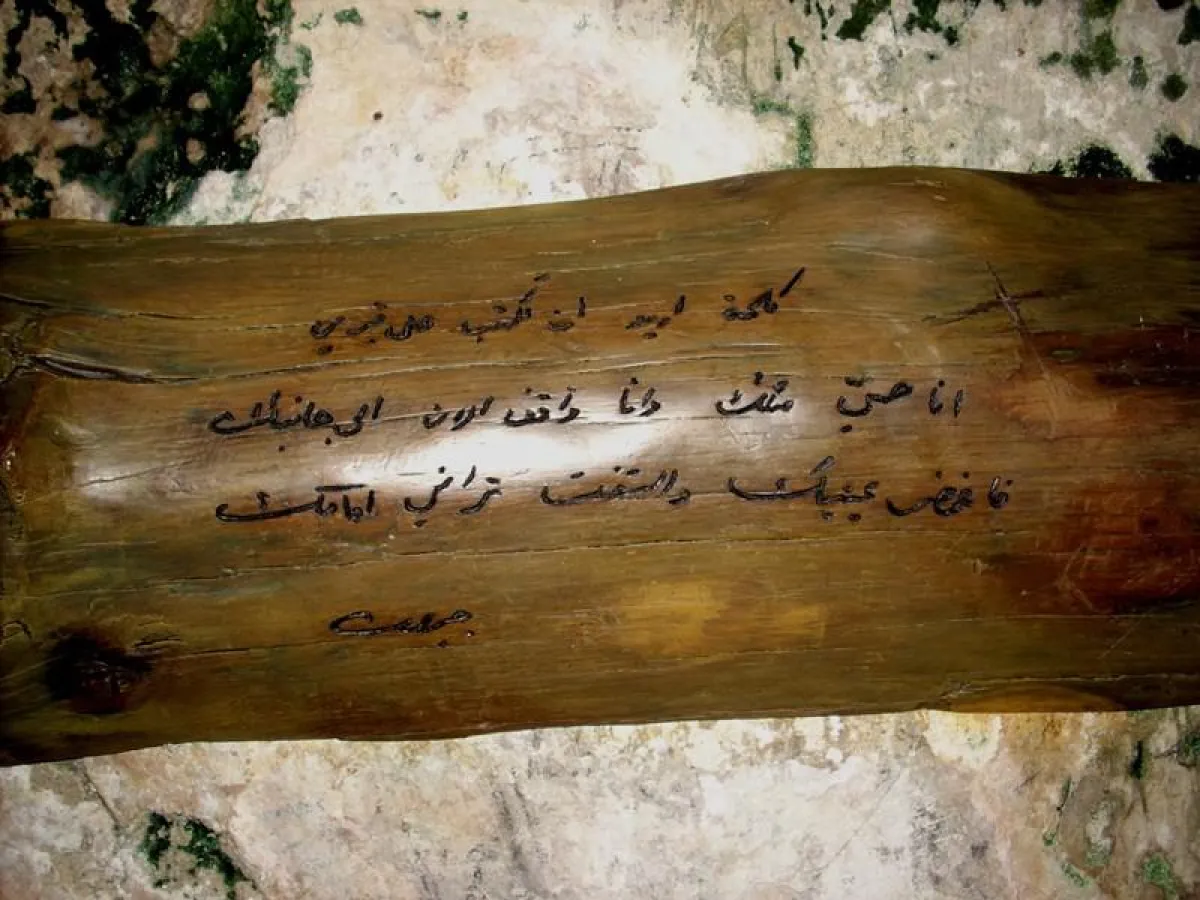 كلمة اريد ان تكتب على قبري
انا حيّ مثلك وانا واقف الان الى جانبك
فاغمض عينيك والتفت تراني امامك
جبران